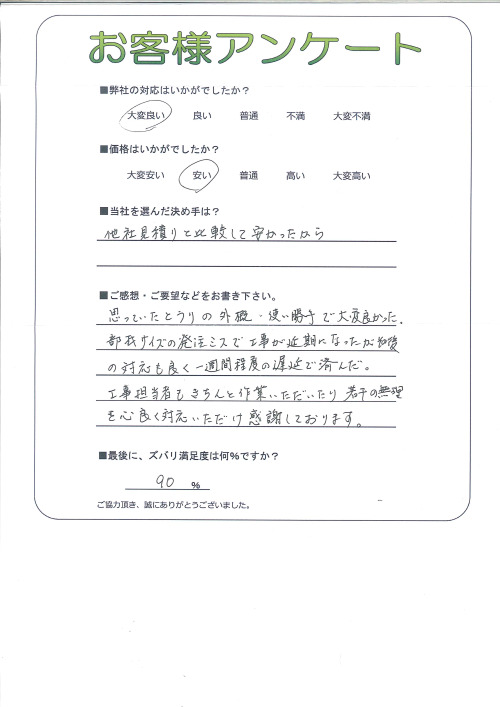 お客様アンケート
■弊社の対応はいかがでしたか?
大変良い 良い 普通 不満 大変不満
■価格はいかがでしたか?
大変安い 安い 普通 高い 大変高い
■当社を選んだ決め手は?
他社見積りと比較して安かったから
■ご感想・ご要望などをお書き下さい。
思っていたとうりの外観・使い勝手で大変良かった.
部材サイズの発注ミスで工事が延期になったが
の対応も良く一週間程度の遅延で済んだ。
工事担当者もきちんと作業いただいたり 若干の無理
を心良く対応いただけ感謝しております。
■最後に、ズバリ満足度は何%ですか?
90 %
ご協力頂き、誠にありがとうございました。